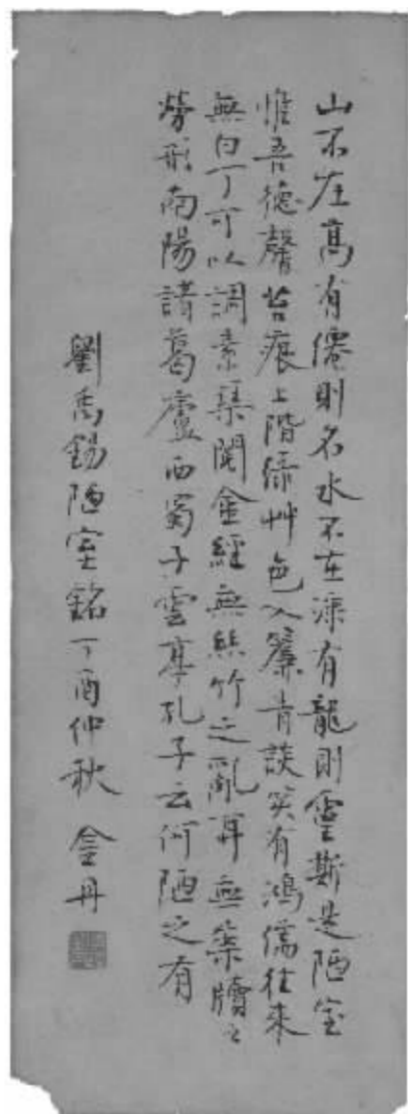 山不在高有僊則名水不在深有龍則靈斯是陋室
惟吾德馨苔痕上階綠艸色入簾青談笑有鴻儒往來
無白丁可以調素琴閱金經無絲竹之亂耳無案牘之
勞形南陽諸葛廬西蜀子雲亭孔子云何陋之有
劉禹錫陋室銘丁酉仲秋 金丹